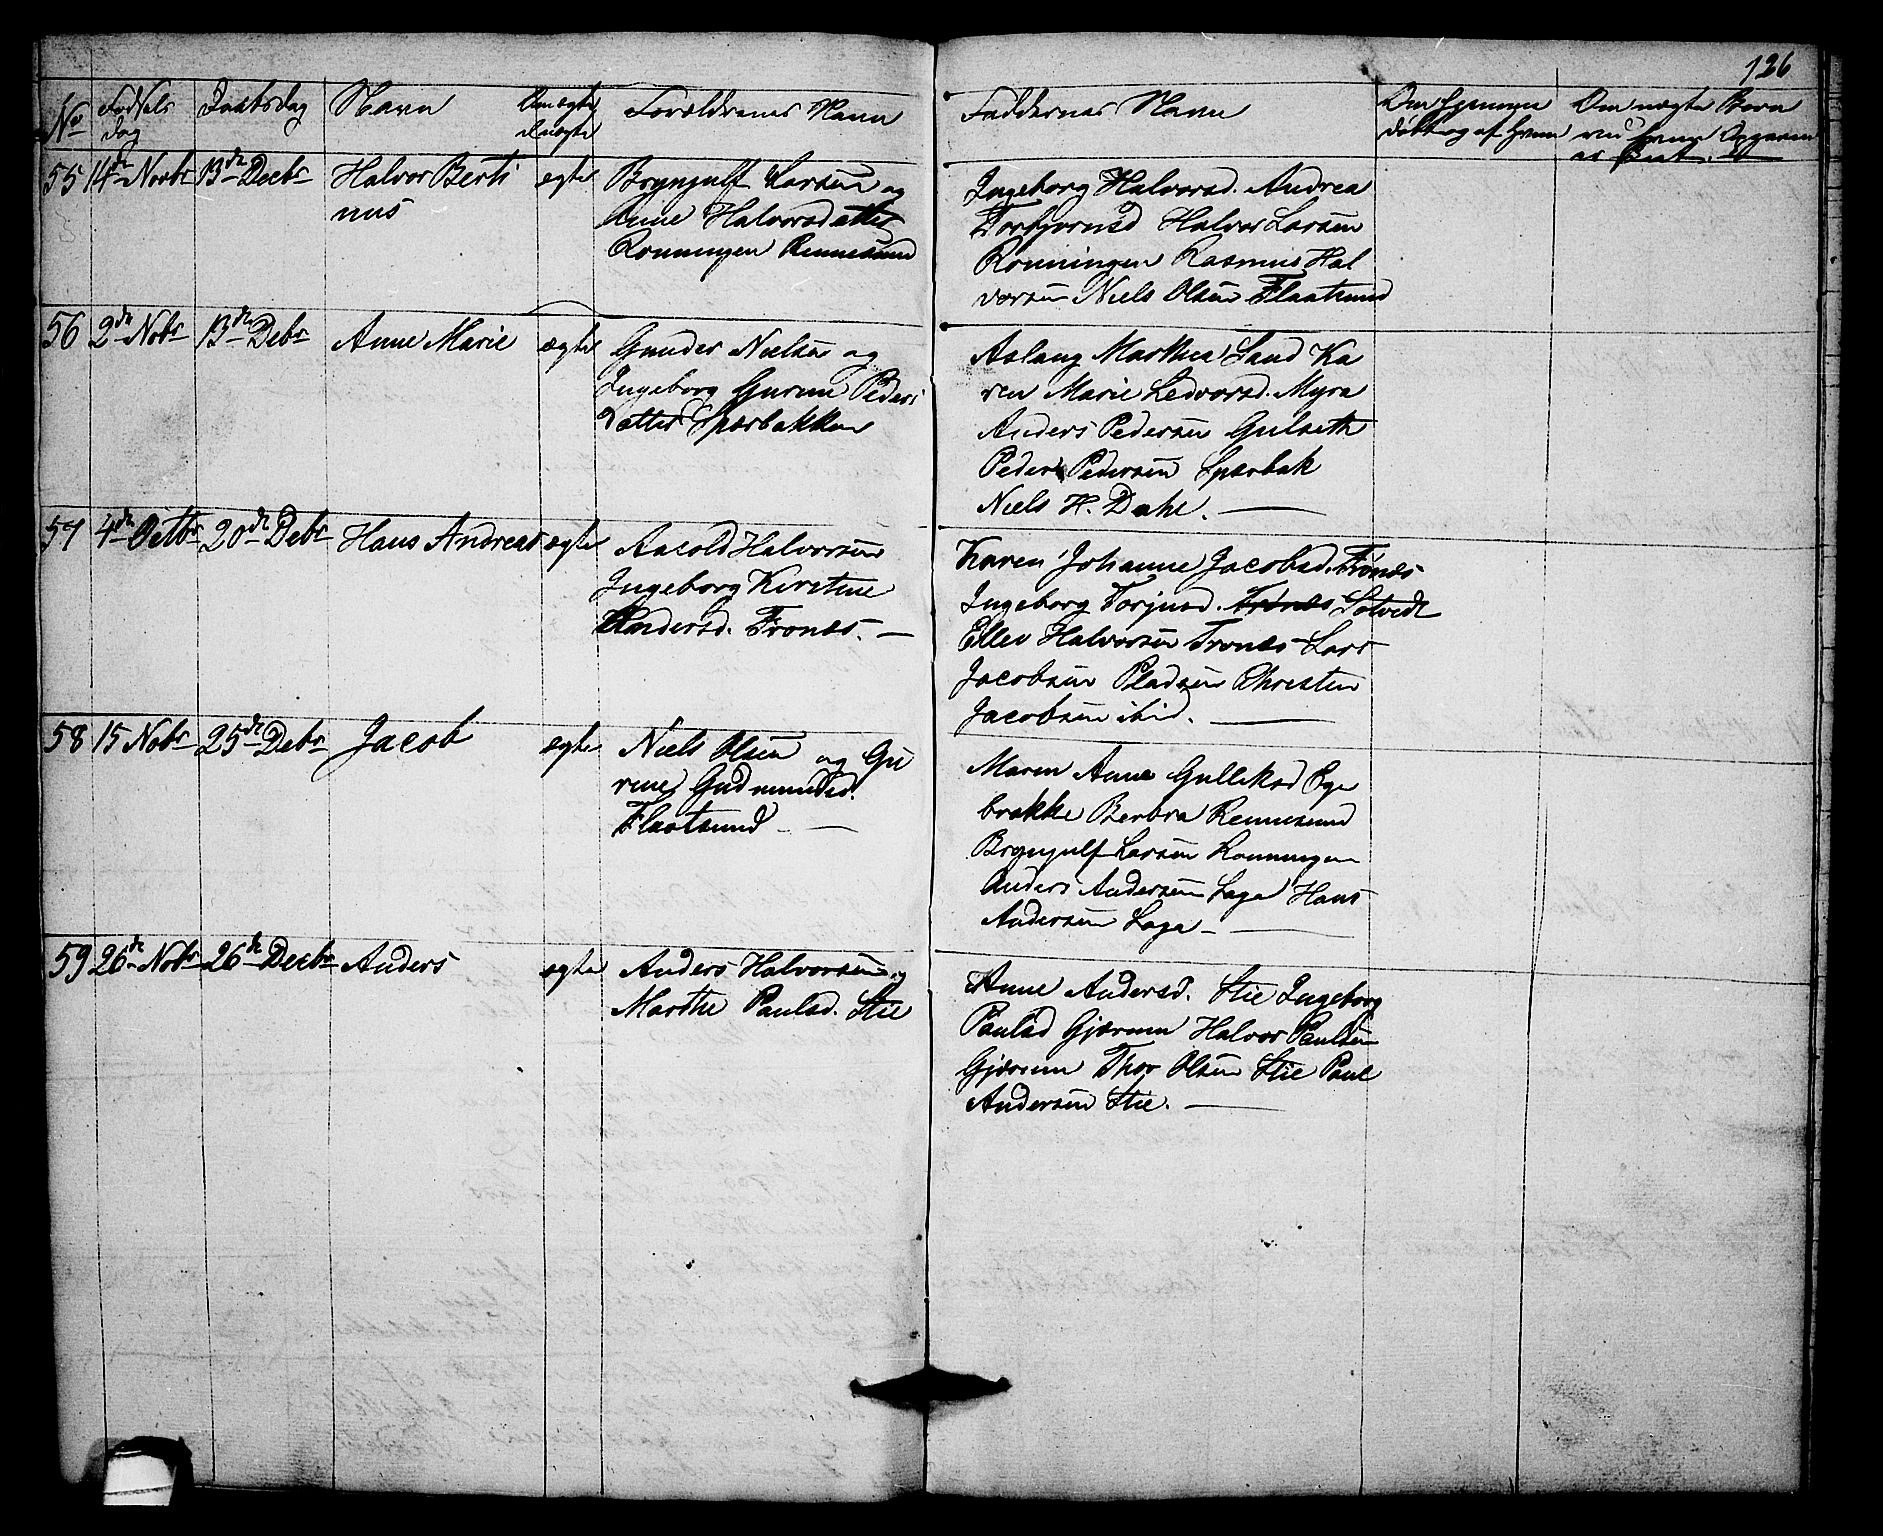 126
No
Fødsels
dag
Daabsdag
Navn
Om ægte
Uægte
Forældrenes Navn
Faddernes Navn
Om hjemme
døbt og af hvem
Om uægte Barn
55
14de Novbr
13de Decbr
Halvor Berti
nus
ægte
Brynjulf Larsen og
Anne Halvorsdatter
Ronningen Rennesund
Ingeborg Halvorsd. Andrea
Torbjornsd Halvor Larsen
Ronningen Rasmus Hal
vorsen Niels Olsen Flaatsund
56
2de Nobr
13de Debr
Anne Marie
ægte
Gunder Nielsen og
Ingeborg Gurine Peders
Datter Spærbakken
Aslaug Marthea Sand Ka
ren Marie Ledvorsd. Myra
Anders Pedersen Gulseth
Peder Pedersen Spærbak
Niels H. Dahl.
57
4de Octbr
20de Debr
Hans Andreas
ægte
Aasold Halvorsen
Ingeborg Kirstine
Andersd. Tronæs.
Karen Johanne Jacobsd. Tronæs
Ingeborg Torjusd. Tronæs Solvedt
Ellev Halvorsen Tronæs Lars
Jacobsen Pladsen Christen
Jacobsen ibid.
58
15 Nobr
25de Debr
Jacob
ægte
Niels Olsen og Gu
rine Gudmundsd.
Flaatsund
Maren Anne Gulleksd Ege
brække Berbra Rennesund
Brynjulf Larsen Ronningen
Anders Andersen Laga Hans
Andersen Laga
59
26de Nobr
26de Decbr
Anders
ægte
Anders Halvorsen og
Marthe Paulsd. Stie
Anne Andersd. Stie Ingeborg
Paulsd Gjærum Halvor Paulsen
Gjærum Thor Olsen Stie Paul
Andersen Stie.